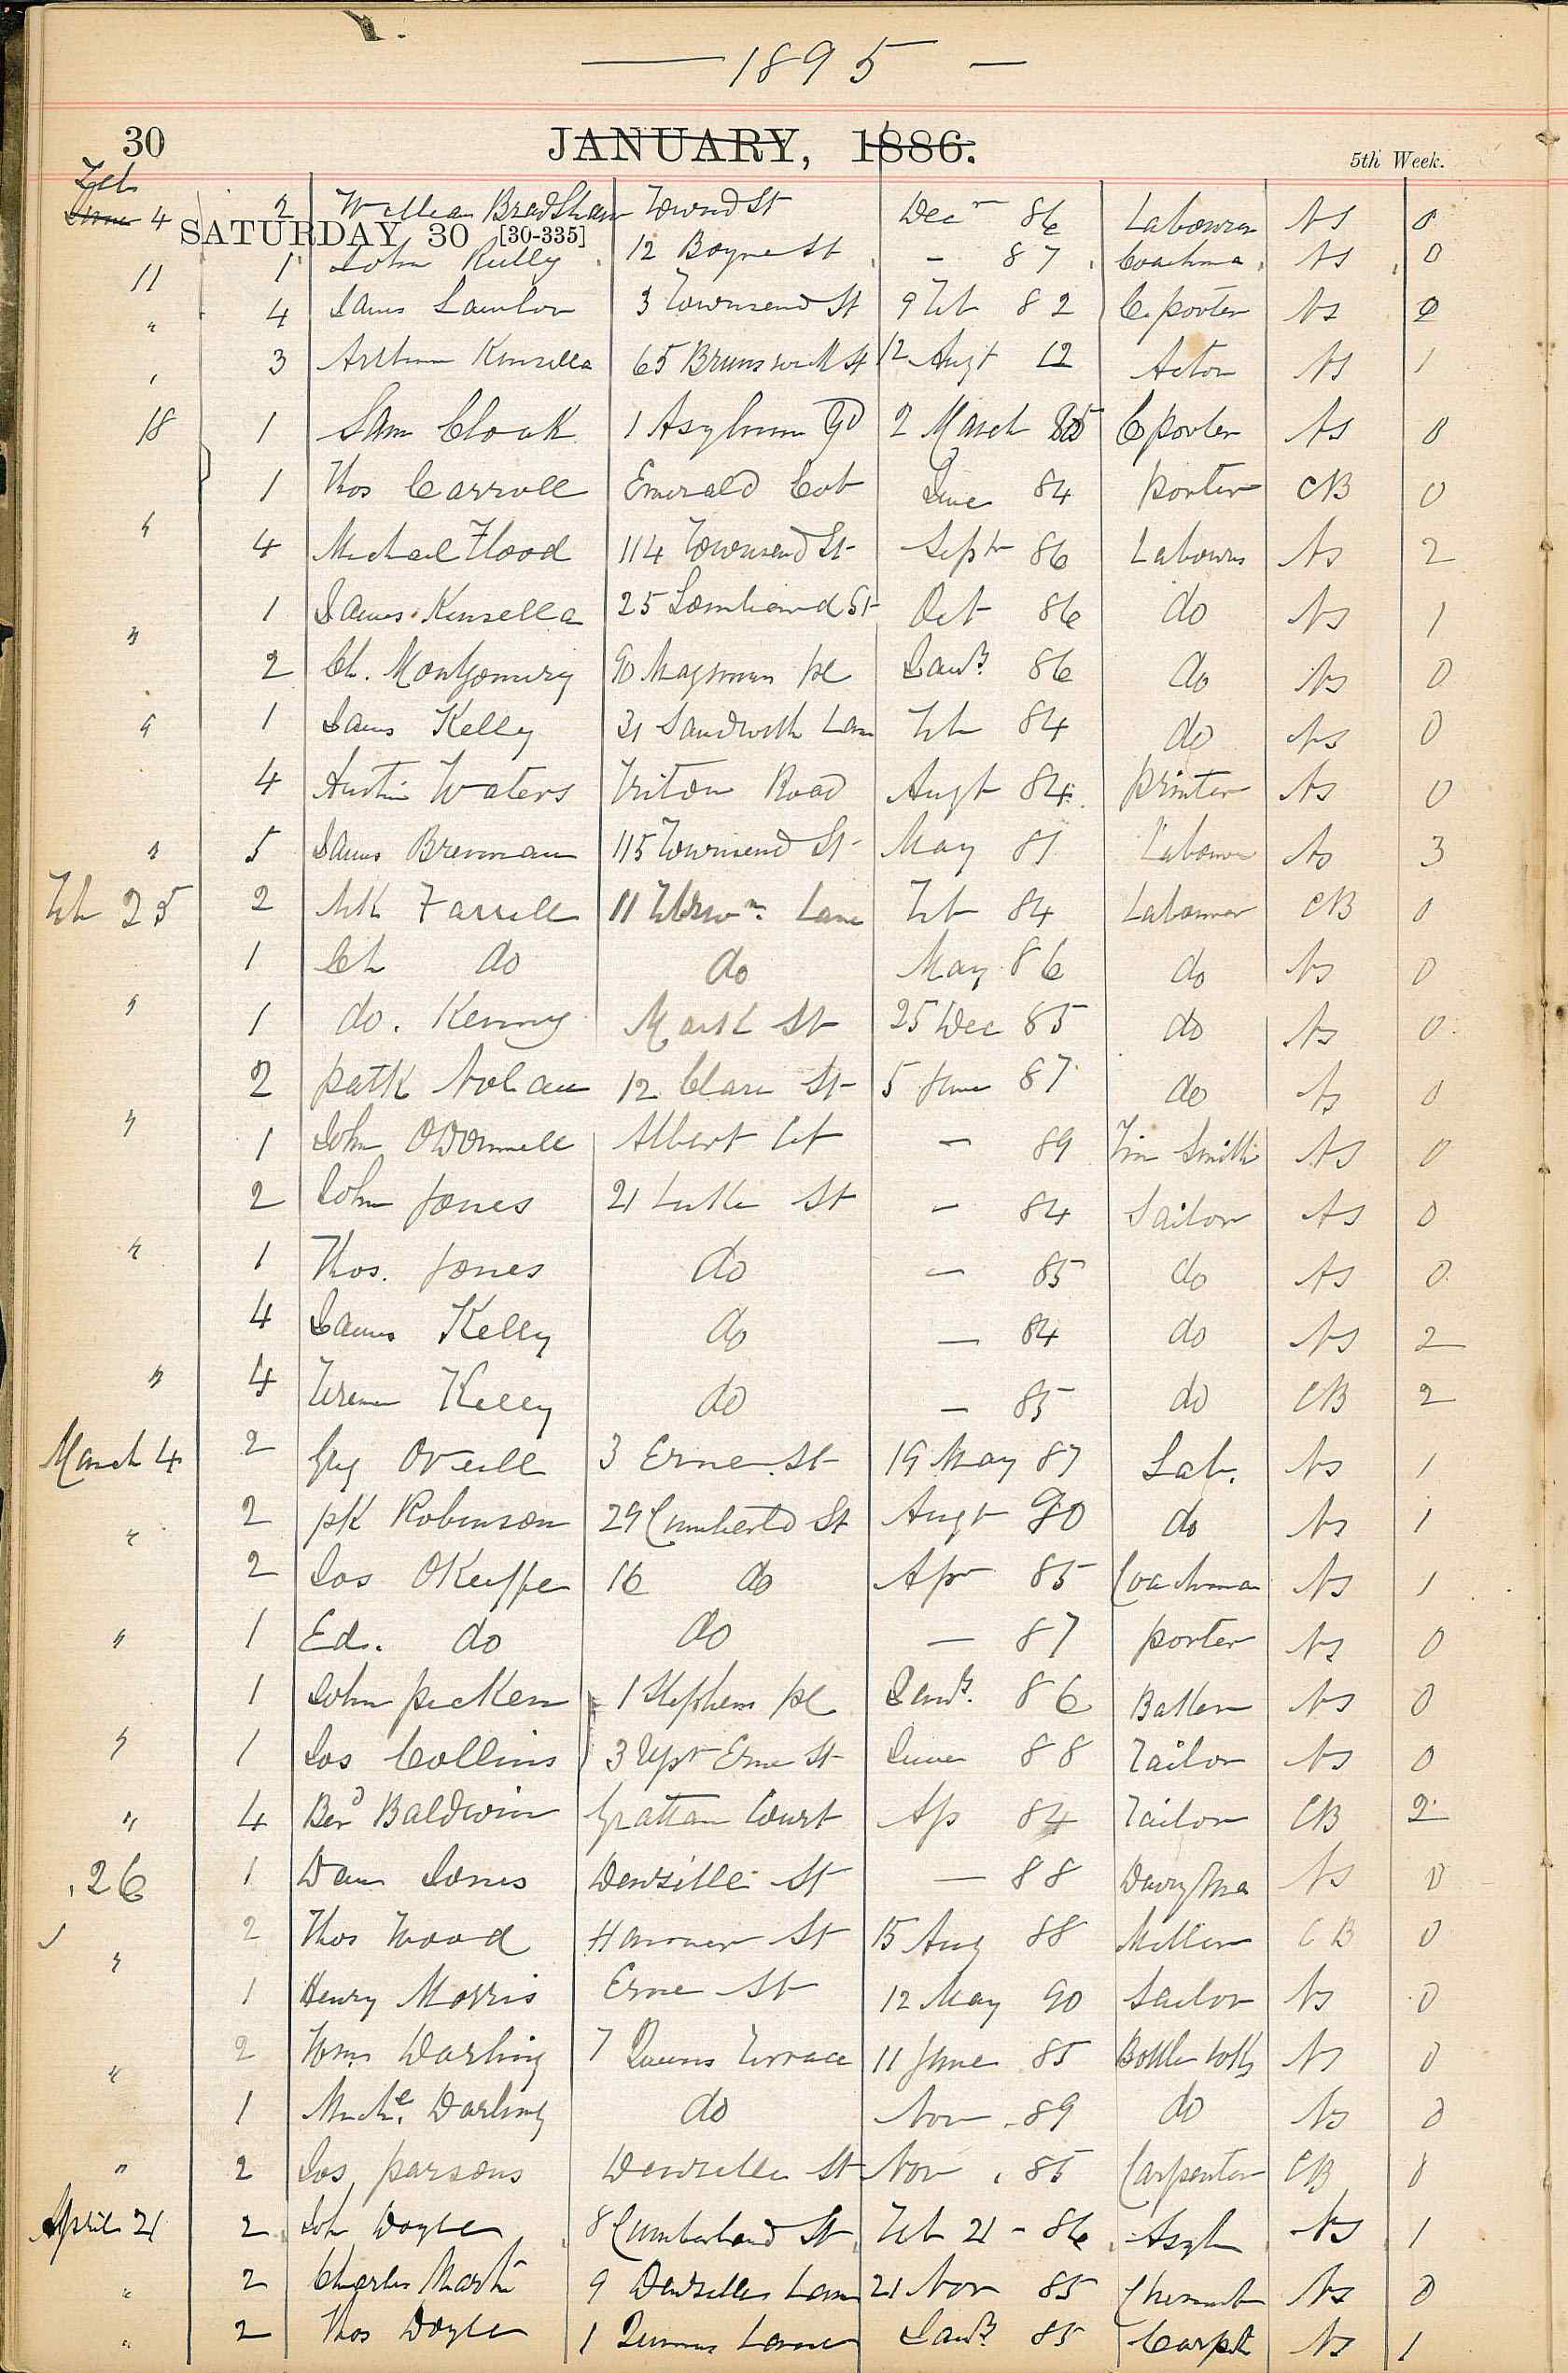 — 1895 —
30 JANUARY, 1886. 5th Week.
Feb
4 2 William Bradshaw Townd St Decr 86 Labourer NS 0
SATURDAY 30 [30-335]
11 1 John Reilly 12 Boyne St - 87 Coachma NS 0
" 4 James Lawlor 3 Townsend St 9 Feb 82 C. porter NS 0
" 3 Arthur Kinsella 65 Brunswick St 12 Augt 12 Actor NS 1
18 1 Sam Cloak 1 Asylum Yd 2 March 85 C porter NS 0
1 Thos Carroll Emerald Cot June 84 porter CB 0
" 4 Michael Flood 114 Townsend St Septr 86 Labourer NS 2
1 James Kinsella 25 Lombard St Oct 86 do NS 1
" 2 Ch. Montgomery 90 pl Jany. 86 do NS 0
" 1 James Kelly 31 Sandwith Lane Feb 84 do NS 0
4 Austin Waters Triton Road Augt 84 printer NS 0
" 5 James Brennan 115 Townsend St May 81 Labourer NS 3
Feb 25 2 Mk Farrell 11 Lane Feb 84 Labourer CB 0
1 Ch do do May 86 do NS 0
" 1 do. Kenny Mark St 25 Dec 85 do NS 0
2 patk Nolan 12 Clare St 5 June 87 do NS 0
" 1 John ODonnell Albert Ct - 89 Tin Smith NS 0
2 John Jones 21 Luke St - 84 Sailor NS 0
" 1 Thos. Jones do - 85 do NS 0
4 James Kelly do - 84 do NS 2
" 4 Terence Kelly do - 85 do CB 2
March 4 2 ONeill 3 Erne St 19 May 87 Lab. NS 1
" 2 pk Robinson 29 Cumberld St Augt 90 do NS 1
2 Jos OKeeffe 16 do Apr 85 Coachman NS 1
" 1 Ed. do do — 87 porter NS 0
1 John picken 1 Stephens pl Jany. 86 Baker NS 0
" 1 Jos Collins 3 Uppr Erne St June 88 Tailor NS 0
" 4 Berd Baldwin Grattan Court Ap 84 Tailor CB 2
26 1 Dan Jones Denzille St — 88 Dairyma NS 0
2 Thos Wood Hanover St 15 Aug 88 Miller CB 0
" 1 Henry Morris Erne St 12 May 90 Sailor NS 0
2 Wm. Darling 7 Queens Terrace 11 June 85 Bottle NS 0
" 1 Darling do Nov 89 do NS 0
" 2 Jos parsons Denzille St Nov 85 Carpenter CB 0
April 21 2 Joh Doyle 8 Cumberland St Feb 21 - 86 NS 1
" 2 Charles Martin 9 Denzille Lane 21 Nov 85 Chemist NS 0
" 2 Thos Doyle 1 Jany 85 Carpt NS 1